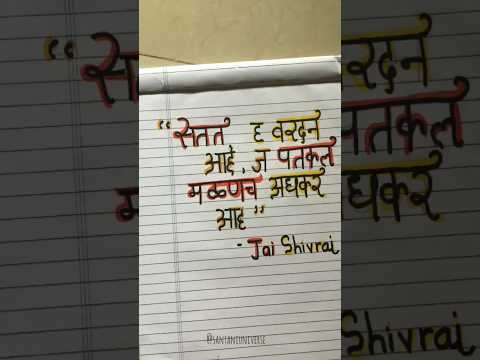 “सतत ह वरदन
आहे, ज पतकल
मळणच अधकर
आहे”
- Jai Shivrai
@SANTANIUNIVERSE